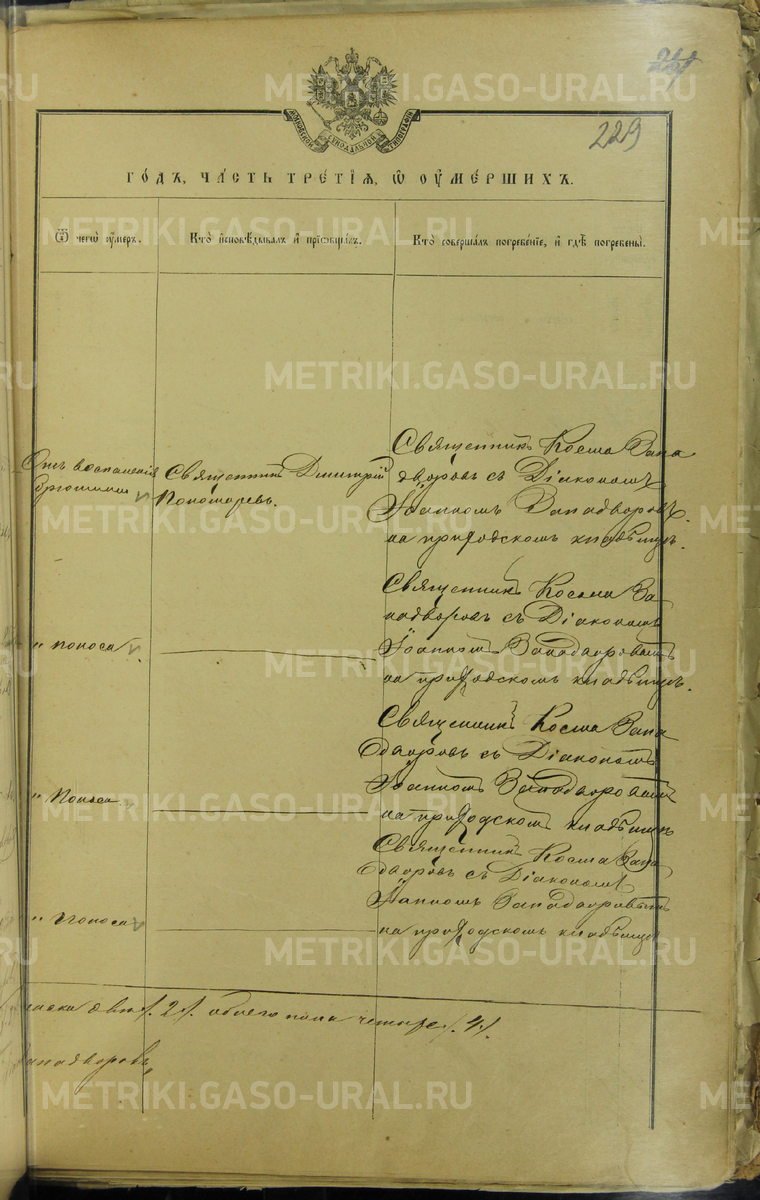 229
МОСКОВСКОЙ СѴНОДАЛЬНОЙ ТИПОГРАФІИ
ГО́ДЪ, ЧА́СТЬ ТРЕ́ТІЯ, Ѽ ОУМЕ́РШИХЪ.
Ѿ чегѡ̀ оу́меръ.
Кто̀ исповѣ́дывалъ и҆ прїѡбща́лъ.
Кто̀ соверша́лъ погребе́нїе, и҆ гдѣ̀ погребены̀.
Отъ воспаленія
брюшины
Священникъ Дмитрій
Пономаревъ.
Священникъ Косма Запа
дворовъ съ Діакономъ
Іоанномъ Западворов
на приходскомъ кладбищѣ.
„ поноса
Священникъ Косма За
падворовъ съ Діакономъ
Іоанномъ Западворовымъ
на приходскомъ кладбищѣ.
„ Поноса
Священникъ Косма Запа
дворовъ съ Діакономъ
Іоанномъ Западворовымъ
на приходскомъ кладбищѣ
„ Поноса
Священникъ Косма Запа
дворовъ съ Діакономъ
Іоанномъ Западворовымъ
на приходскомъ кладбищѣ
двѣ /. 2 /. обоего пола четыре /. 4 /.
ападворовъ
METRIKI.GASO-URAL.RU